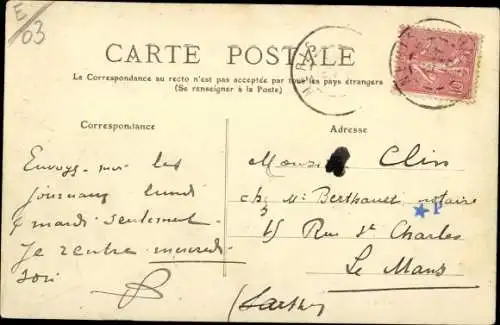 E/03
CARTE POSTALE
La Correspondance au recto n'est pas acceptée par tous les pays étrangers
(Se renseigner à la Poste)
Correspondance
Adresse
Envoyez-moi les
journaux lundi
& mardi seulement
Je rentre mercredi
soir
Monsieur Clin
chz Me Berthauet notaire
15 Rue St Charles
Le Mans
(Sarthe)
P